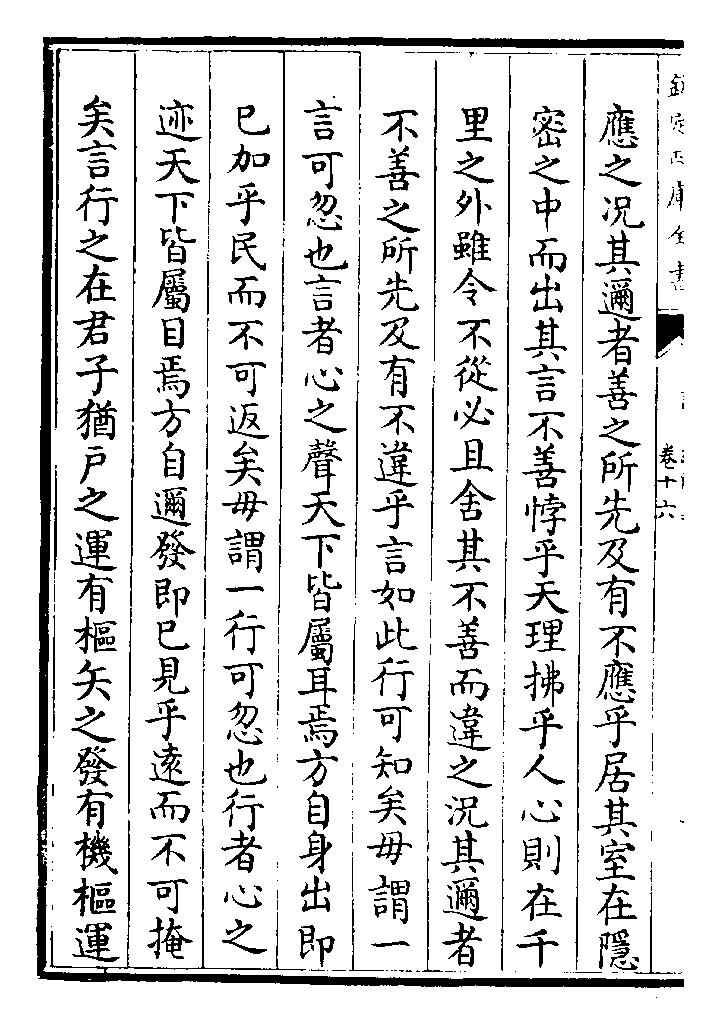 欽定四庫全書
卷十六
應之况其邇者善之所先及有不應乎居其室在隱
密之中而出其言不善悖乎天理拂乎人心則在千
里之外雖令不從必且舍其不善而違之况其邇者
不善之所先及有不違乎言如此行可知矣毋謂一
言可忽也言者心之聲天下皆屬耳焉方自身出即
已加乎民而不可返矣毋謂一行可忽也行者心之
迹天下皆屬目焉方自邇發即已見乎遠而不可掩
矣言行之在君子猶戶之運有樞矢之發有機樞運